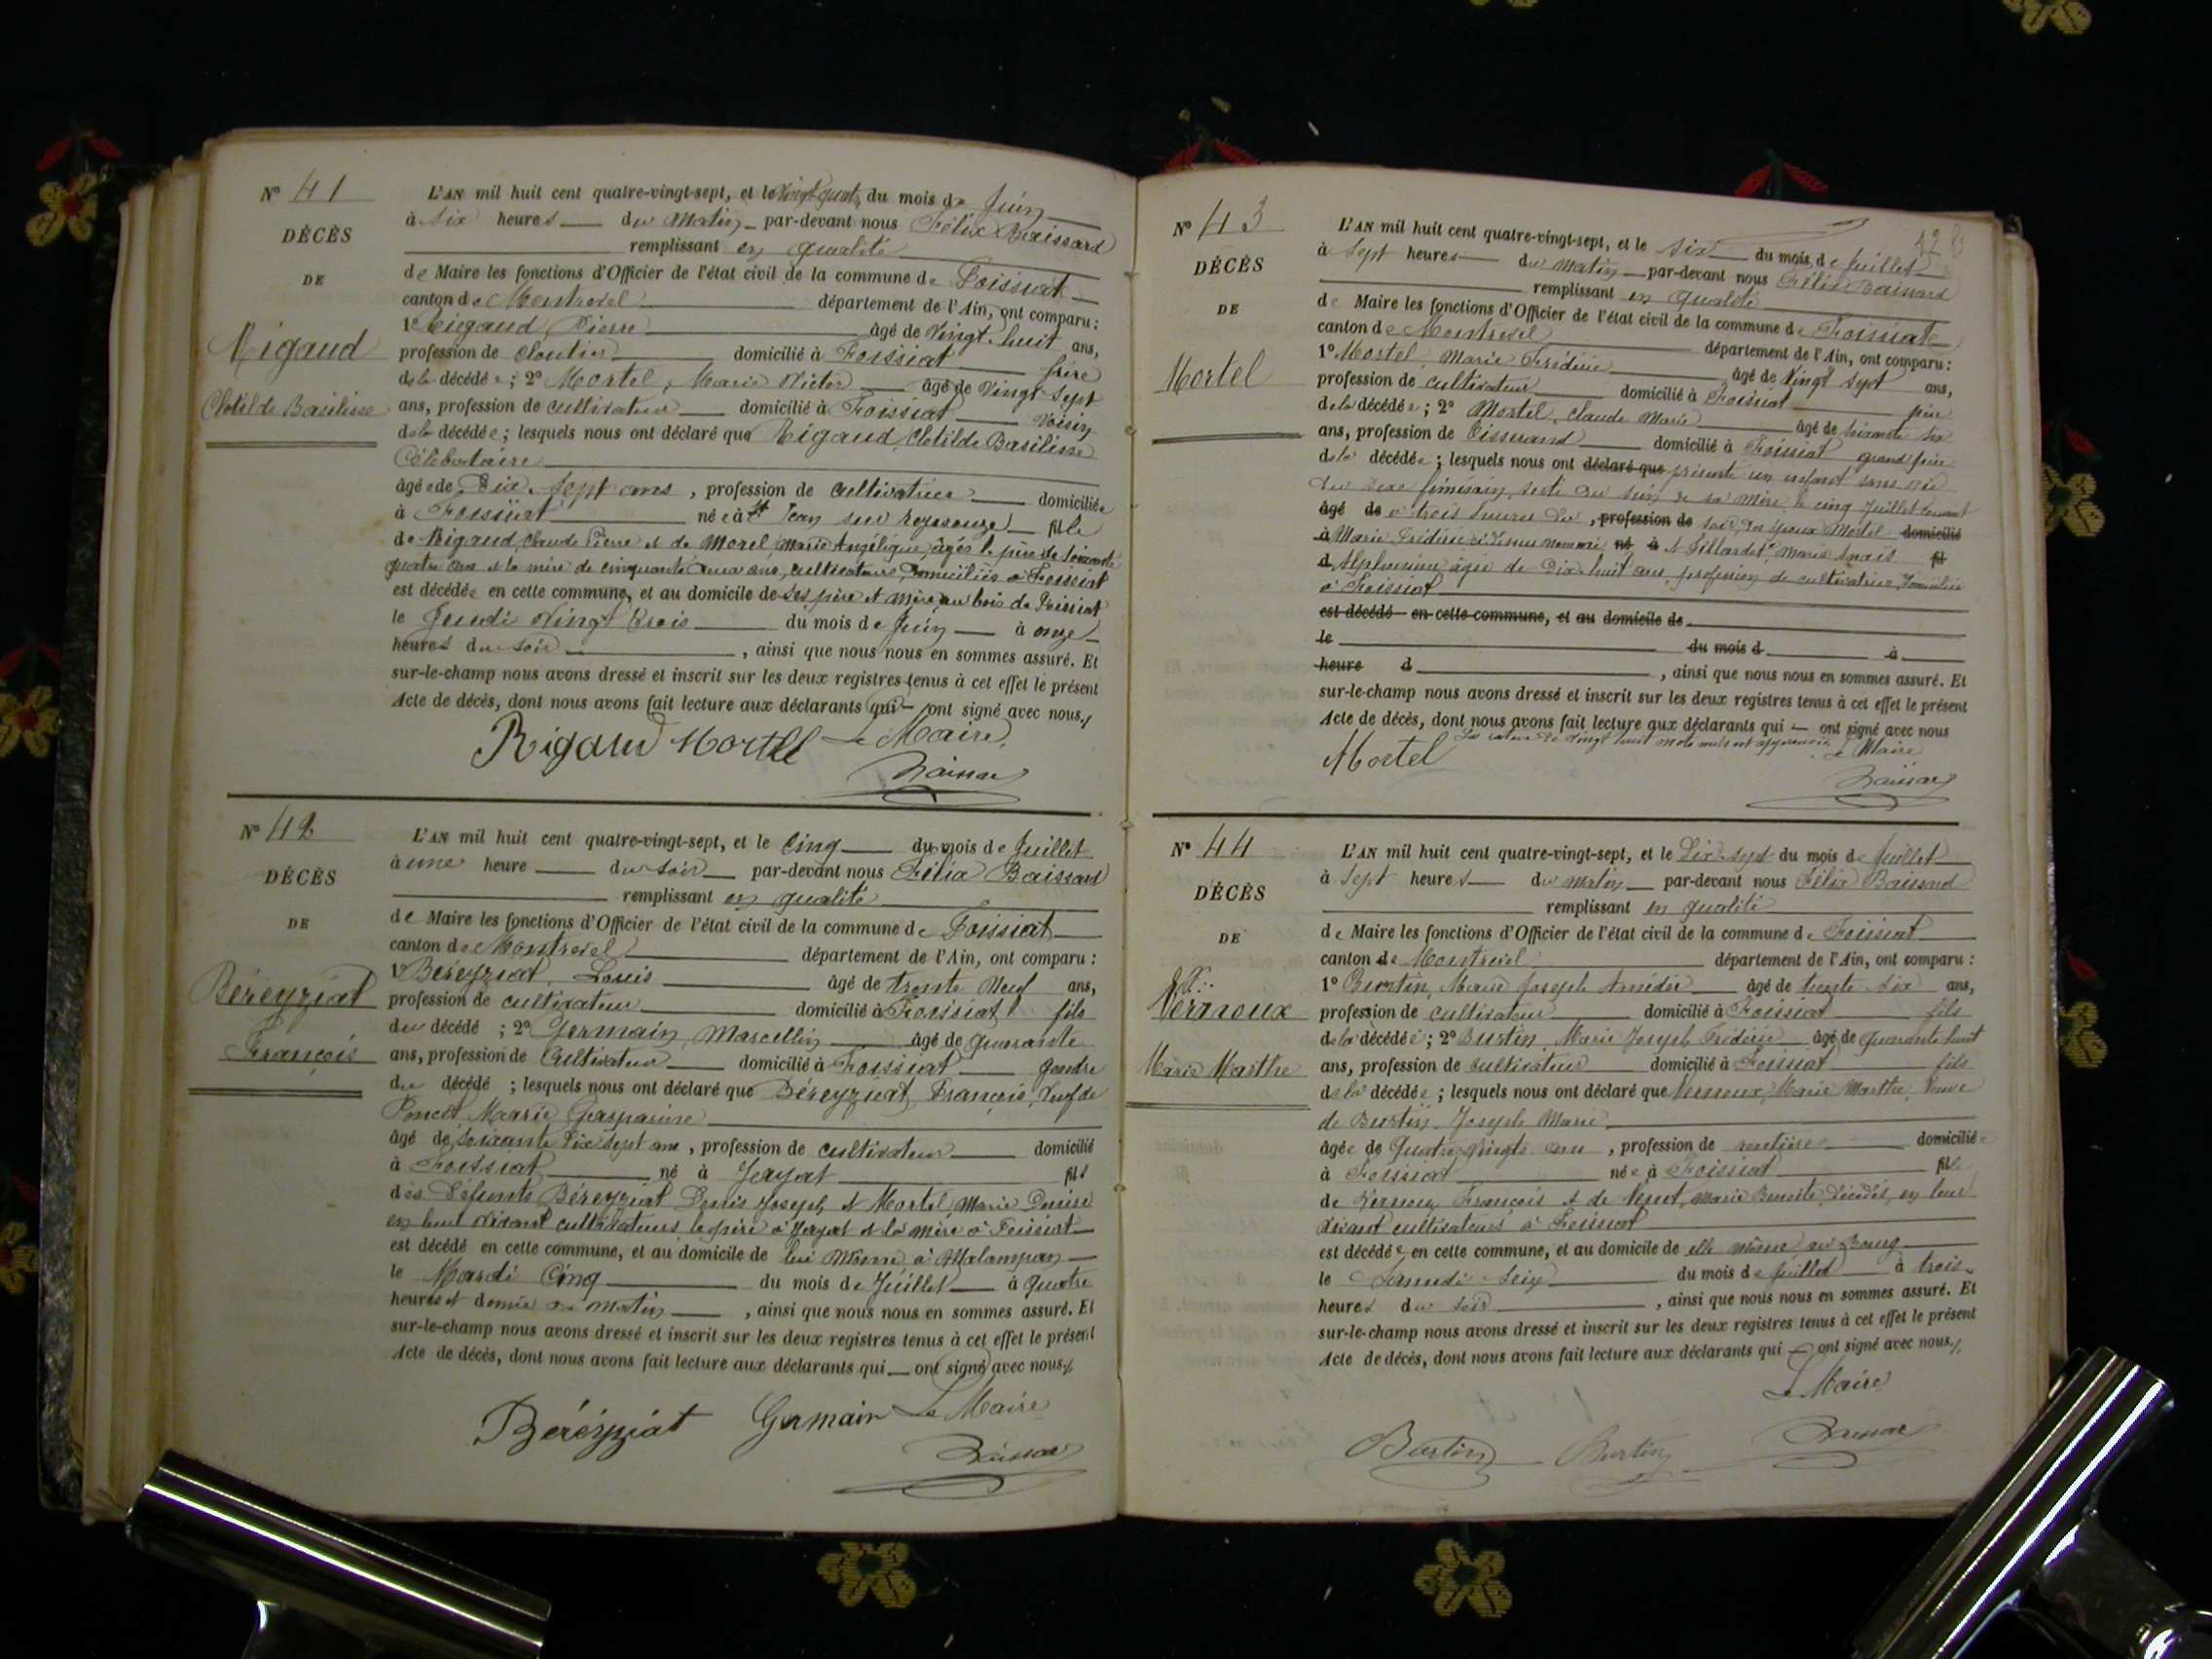 N° 41
DÉCÈS
DE
Rigaud
Clotilde Basilisse
L'AN mil huit cent quatre-vingt-sept, et le Vingt quatre du mois de Juin
à six heures du Matin par-devant nous Félix Baissard
remplissant en qualité
de Maire les fonctions d'Officier de l'état civil de la commune de Foissiat
canton de Montrevel département de l'Ain, ont comparu :
1° Rigaud, Pierre âgé de Vingt-huit ans,
profession de cloutier domicilié à Foissiat frère
de la décédée ; 2° Mortel, Marie Victor âgé de Vingt-Sept
ans, profession de cultivateur domicilié à Foissiat Voisin
de la décédée ; lesquels nous ont déclaré que Rigaud, Clotilde Basilisse
Célibataire
âgée de Dix-Sept ans, profession de cultivatrice domiciliée
à Foissiat née à St Jean sur Reyssouze fille
de Rigaud, Claude Pierre et de Morel, Marie Angélique, âgés le père de soixante
quatre ans et la mère de cinquante deux ans, cultivateurs, domiciliés à Foissiat
est décédée en cette commune, et au domicile de ses père et mère, au bois de Foissiat
le Jeudi Vingt trois du mois de Juin à onze
heures du soir, ainsi que nous nous en sommes assuré. Et
sur-le-champ nous avons dressé et inscrit sur les deux registres tenus à cet effet le présent
Acte de décès, dont nous avons fait lecture aux déclarants qui ont signé avec nous./
Rigaud Mortel Le Maire
Baissard
N° 42
DÉCÈS
DE
Béreyziat
François
L'AN mil huit cent quatre-vingt-sept, et le Cinq du mois de Juillet
à une heure du soir par-devant nous Félix Baissard
remplissant en qualité
de Maire les fonctions d'Officier de l'état civil de la commune de Foissiat
canton de Montrevel département de l'Ain, ont comparu :
1° Béreyziat, Louis âgé de trente Neuf ans,
profession de cultivateur domicilié à Foissiat fils
du décédé ; 2° Germain, Marcellin âgé de quarante
ans, profession de Cultivateur domicilié à Foissiat gendre
du décédé ; lesquels nous ont déclaré que Béreyziat, François, Veuf de
Poncet Marie Gasparine
âgé de soixante Dix Sept ans, profession de cultivateur domicilié
à Foissiat né à Jayat fils
des Défunts Béreyziat Denis Joseph et Mortel Marie Denise
en leur Vivant cultivateurs, le père à Jayat et la mère à Foissiat
est décédé en cette commune, et au domicile de lui Même à Malampan
le Mardi Cinq du mois de Juillet à quatre
heures et demie du matin, ainsi que nous nous en sommes assuré. Et
sur-le-champ nous avons dressé et inscrit sur les deux registres tenus à cet effet le présent
Acte de décès, dont nous avons fait lecture aux déclarants qui ont signé avec nous./
Béréyziat Germain Le Maire
Baissard
N° 43
DÉCÈS
DE
Mortel
L'AN mil huit cent quatre-vingt-sept, et le six du mois de Juillet
à Sept heures du Matin par-devant nous Félix Baissard
remplissant en qualité
de Maire les fonctions d'Officier de l'état civil de la commune de Foissiat
canton de Montrevel département de l'Ain, ont comparu :
1° Mortel, Marie Frédéric âgé de Vingt Sept ans,
profession de cultivateur domicilié à Foissiat père
de la décédée ; 2° Mortel, Claude Marie âgé de soixante six
ans, profession de tisserand domicilié à Foissiat grand père
de la décédée ; lesquels nous ont déclaré que présenté un enfant sans vie
du sexe féminin, sorti du sein de sa mère le cinq Juillet courant
âgé de à trois heures du, profession de soir, des époux Mortel domicilié
à Marie Frédéric ci-dessus nommé né à et Pillardet Marie Anaïs fil
d Alphonsine âgée de Dix-huit ans, profession de cultivatrice, domiciliée
à Foissiat
est décédé en cette commune, et au domicile de
le du mois d à
heure d, ainsi que nous nous en sommes assuré. Et
sur-le-champ nous avons dressé et inscrit sur les deux registres tenus à cet effet le présent
Acte de décès, dont nous avons fait lecture aux déclarants qui ont signé avec nous
La rature de vingt huit mots nuls est approuvée
Mortel Le Maire
Baissard
N° 44
DÉCÈS
DE
Vernoux
Marie Marthe
L'AN mil huit cent quatre-vingt-sept, et le Dix-Sept du mois de Juillet
à Sept heures du Matin par-devant nous Félix Baissard
remplissant en qualité
de Maire les fonctions d'Officier de l'état civil de la commune de Foissiat
canton de Montrevel département de l'Ain, ont comparu :
1° Burtin, Marie Joseph Amédée âgé de trente six ans,
profession de cultivateur domicilié à Foissiat fils
de la décédée ; 2° Burtin Marie Joseph Frédéric âgé de quarante huit
ans, profession de cultivateur domicilié à Foissiat fils
de la décédée ; lesquels nous ont déclaré que Vernoux, Marie Marthe, Veuve
de Burtin Joseph Marie
âgée de Quatre-Vingts ans, profession de rentière domiciliée
à Foissiat née à Foissiat fille
de Vernoux François et de Marie Benoite, décédés, en leur
vivant cultivateurs à Foissiat
est décédée en cette commune, et au domicile de elle même au Bourg
le Samedi Seize du mois de Juillet à trois
heures du soir, ainsi que nous nous en sommes assuré. Et
sur-le-champ nous avons dressé et inscrit sur les deux registres tenus à cet effet le présent
Acte de décès, dont nous avons fait lecture aux déclarants qui ont signé avec nous./
Le Maire
Burtin Burtin Baissard